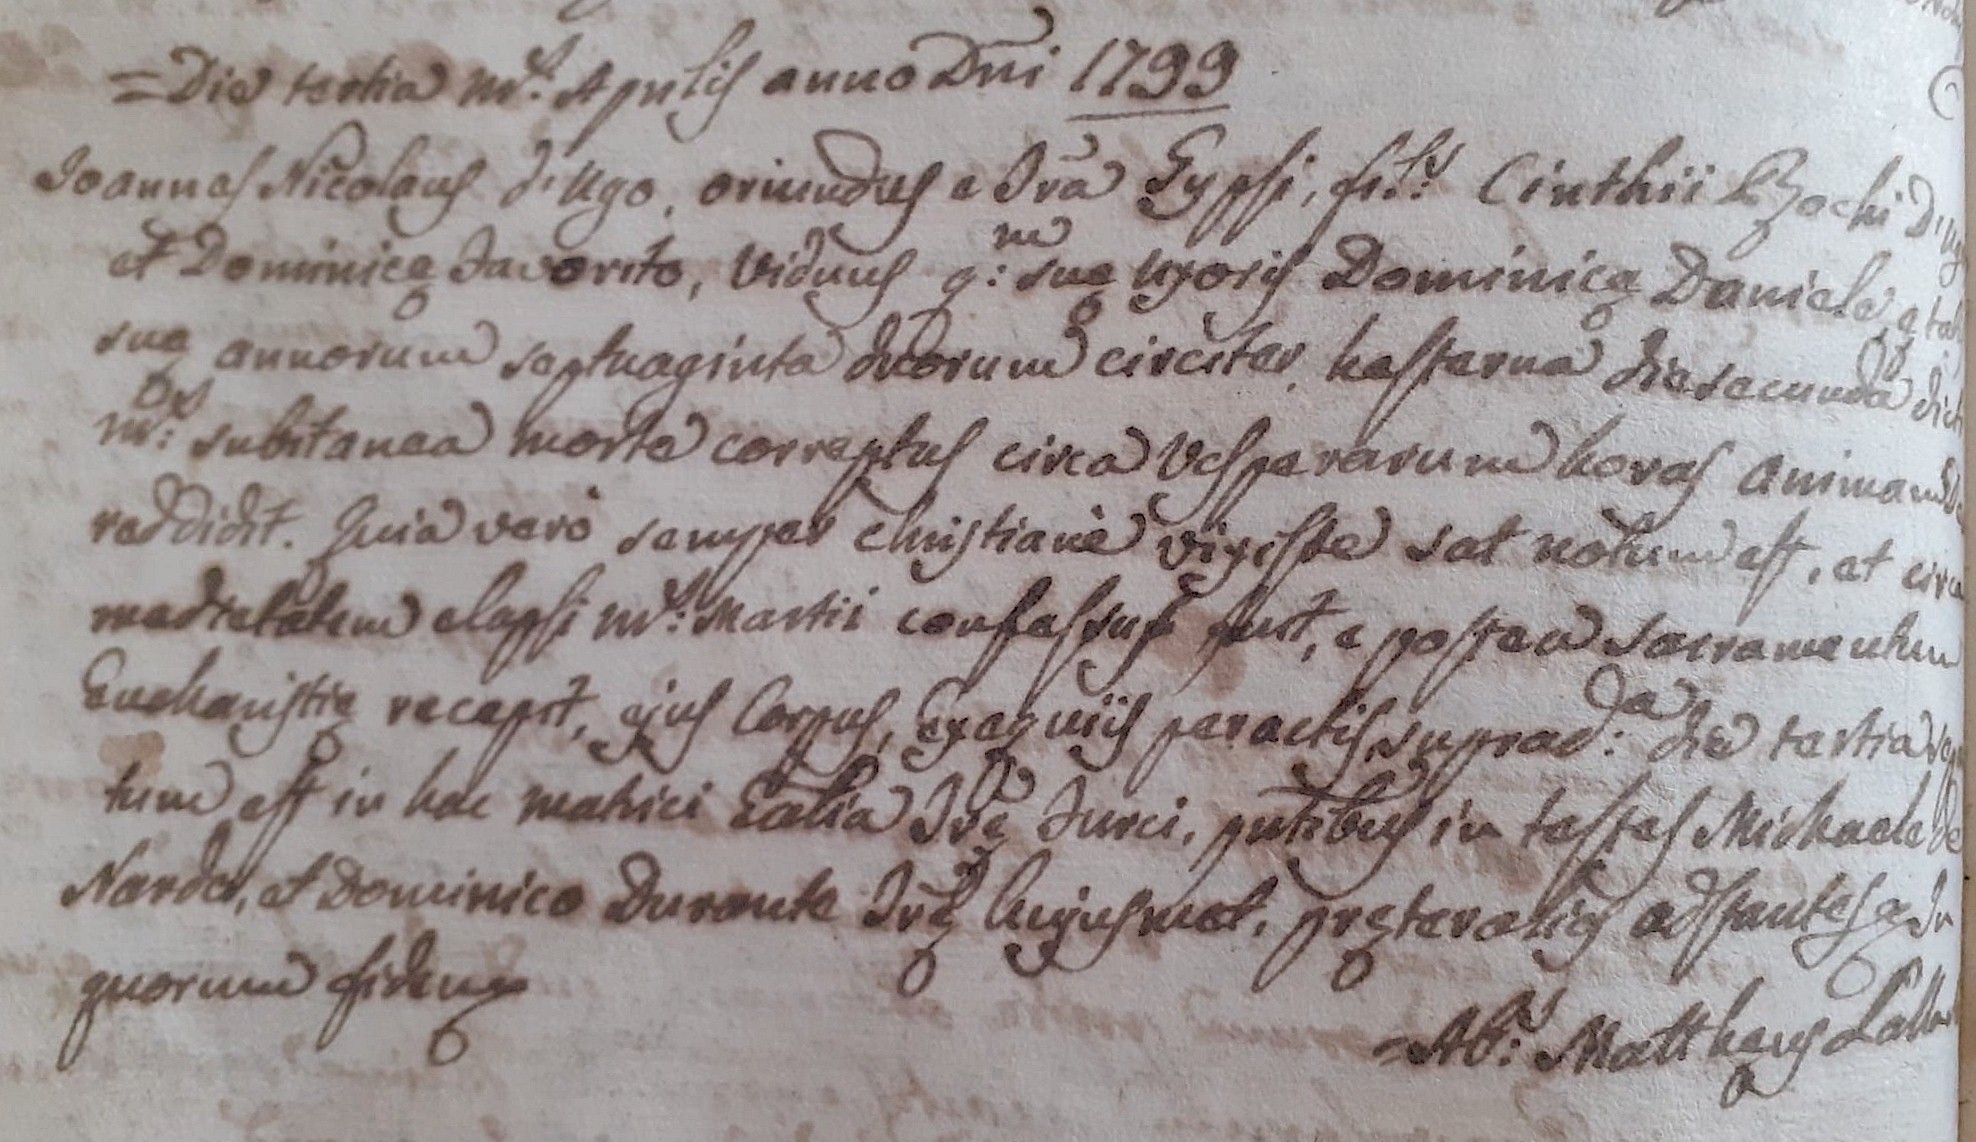 = Die tertia m.s Aprilis anno Dni 1799
Joannes Nicolaus d'Ugo, oriundus e Trã Gypsi, fil.s Cinthii Ezechi D'Ug
et Dominicę Iavorito, viduus q:m suę uxoris Dominicę Daniele ętat
suę annorum septuaginta duorum circiter, hesterna die secunda dicti
m:s subitanea morte correptus circa Vesperarum horas animam Deo
reddidit. Quia verò semper christianè vixisse sat notum est, et circa
medietatem elapsi m.s Martii confessus fuit, e postea sacramentum
Eucharistię recepit, ejus Corpus, Exequiis peractis, suprad:a die tertia sepul
tum est in hac matrici Ecclia Trę Furci, pntibus in testes Michaele de
Nardo, et Dominico Durante Trę hujusmet, pręter alios adstantes & In
quorum fidem &
= Ab.s Matthęus